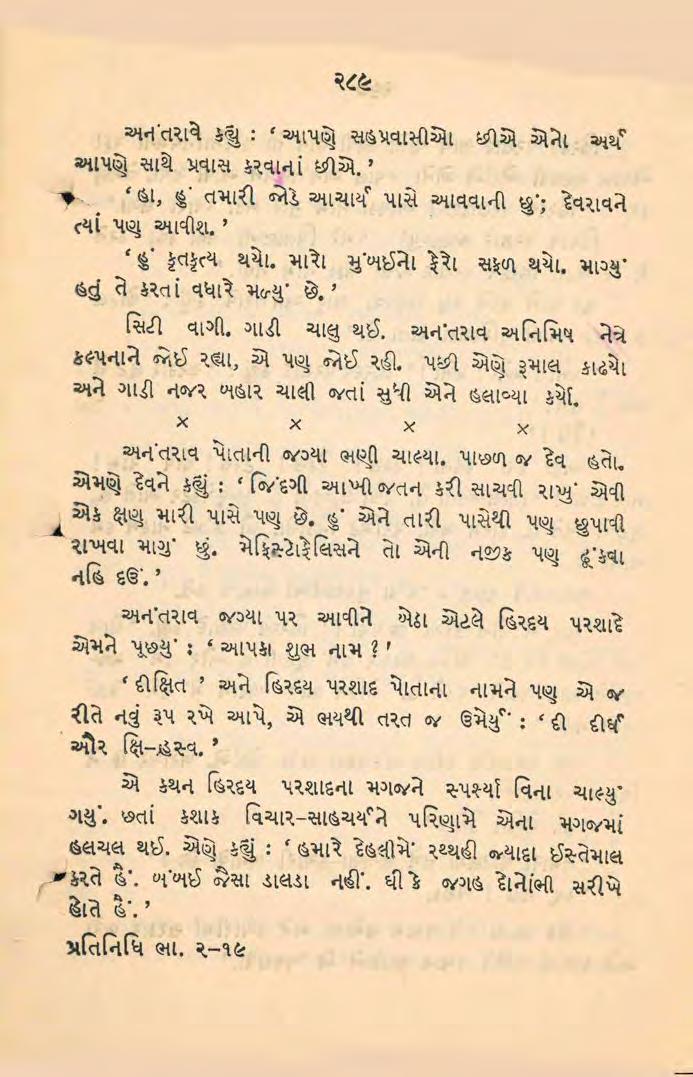 ૨૮૯
અનંતરાવે કહ્યું : ‘ આપણે સહપ્રવાસીઓ છીએ એનો અર્થ
આપણે સાથે પ્રવાસ કરવાનાં છીએ. ’
‘ હા, હું તમારી જોડે આચાર્ય પાસે આવવાની છું; દેવરાવને
ત્યાં પણ આવીશ. ’
‘ હું કૃતકૃત્ય થયો. મારો મુંબઈનો ફેરો સફળ થયો. માગ્યું
હતું તે કરતાં વધારે મળ્યું છે. ’
સિટી વાગી. ગાડી ચાલુ થઈ. અનંતરાવ અનિમિષ નેત્રે
કલ્પનાને જોઈ રહ્યા, એ પણ જોઈ રહી. પછી એણે રૂમાલ કાઢયો
અને ગાડી નજર બહાર ચાલી જતાં સુધી એને હલાવ્યા કર્યો.
× × × ×
અનંતરાવ પોતાની જગ્યા ભણી ચાલ્યા. પાછળ જ દેવ હતો.
એમણે દેવને કહ્યું : ‘ જિંદગી આખી જતન કરી સાચવી રાખું એવી
એક ક્ષણ મારી પાસે પણ છે. હું એને તારી પાસેથી પણ છુપાવી
રાખવા માગું છું. મેફિસ્ટોફેલિસને તો એની નજીક પણ ઢૂંકવા
નહિ દઉં. ’
અનંતરાવ જગ્યા પર આવીને બેઠા એટલે હિરદય પરશાદે
એમને પૂછયું : ‘ આપકા શુભ નામ ? ’
‘ દીક્ષિત ’ અને હિરદય પરશાદ પોતાના નામને પણ એ જ
રીતે નવું રૂપ રખે આપે, એ ભયથી તરત જ ઉમેર્યું : ‘ દી દીર્ઘ
ઔર ક્ષિ–હ્રસ્વ. ’
એ કથન હિરદય પરશાદના મગજને સ્પર્શ્યા વિના ચાલ્યું
ગયું. છતાં કશાક વિચાર–સાહચર્યને પરિણામે એના મગજમાં
હલચલ થઈ. એણે કહ્યું : ‘ હમારે દેહલીમેં રથ્થહી જ્યાદા ઈસ્તેમાલ
કરતે હૈં. બંબઈ જૈસા ડાલડા નહીં. ઘી કે જગહ દોનોંભી સરીખે
હોતે હૈં. ’
પ્રતિનિધિ ભા. ૨–૧૯